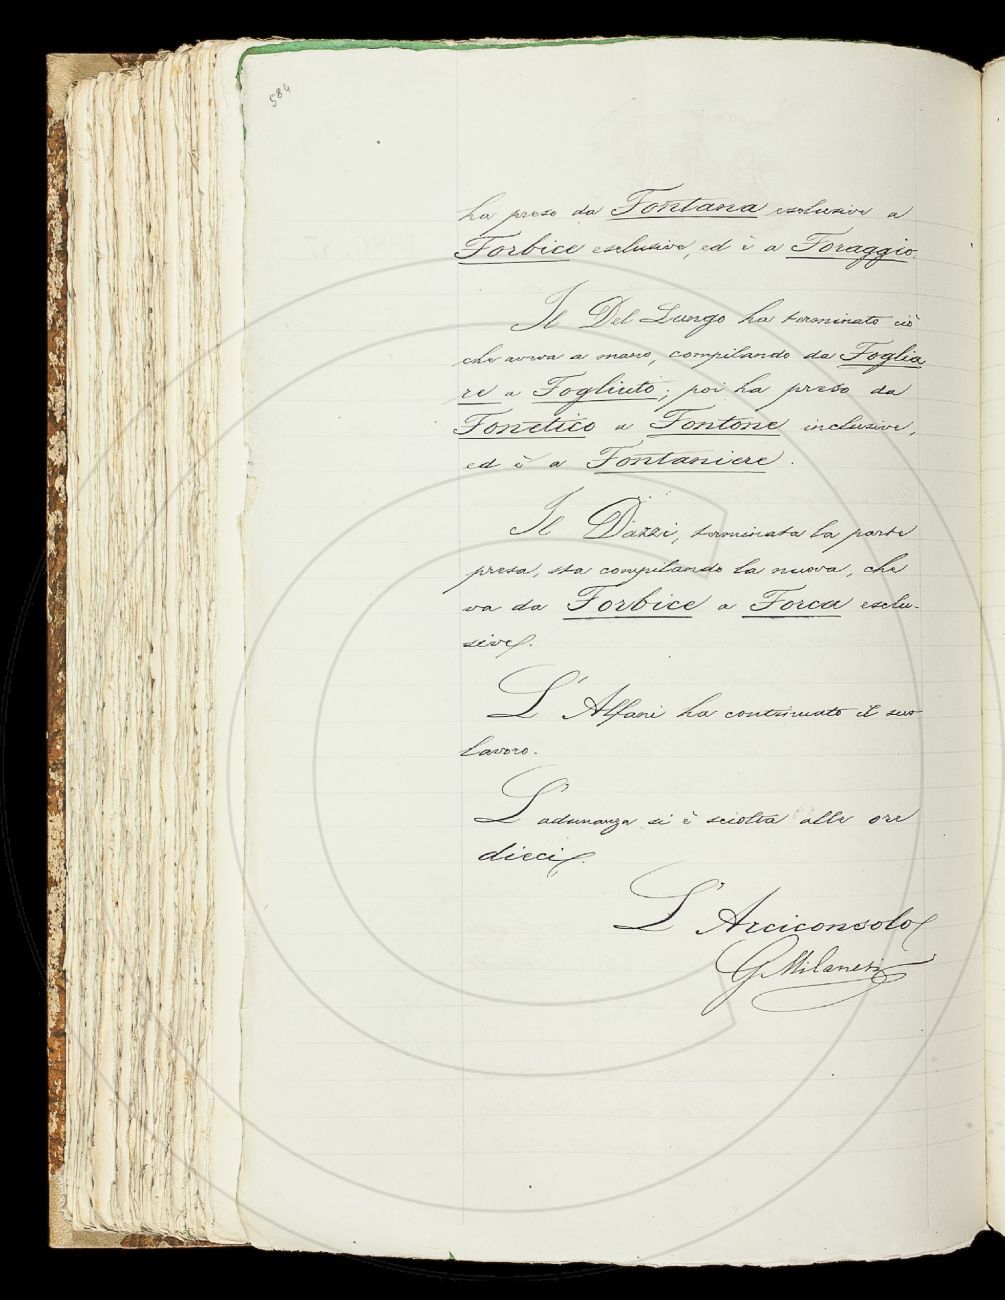 584
ha preso da Fontana esclusive a
Forbice esclusive, ed è a Foraggio.
Il Del Lungo ha terminato ciò
che aveva a mano, compilando da Foglia
re a Fogliuto; poi ha preso da
Fonetico a Fontone inclusive,
ed è a Fontaniere.
Il Dazzi, terminata la parte
presa, sta compilando la nuova, che
va da Forbice a Forca esclu-
sive.
L'Alfani ha continuato il suo
lavoro.
L'adunanza si è sciolta alle ore
dieci.
L'Arciconsolo
G Milanesi